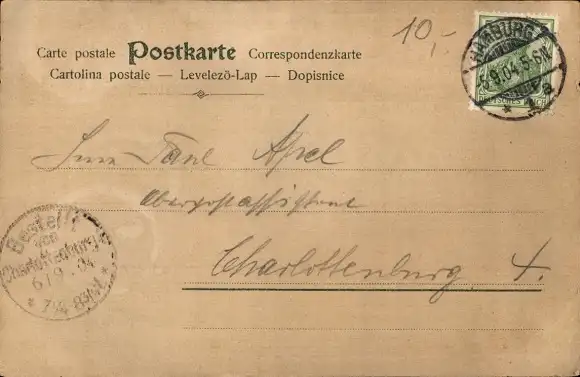 10,-
Carte postale Postkarte Correspondenzkarte
Cartolina postale — Levelezõ-Lap — Dopisnice
HAMBURG
.9.04.5-6N.
DEUTSCHES REICH
Herrn Paul Apel
Oberpostassistent
Charlottenburg 4.
Bestellt
von
Charlottenburg
6/9. 04
7¼-8¾V.